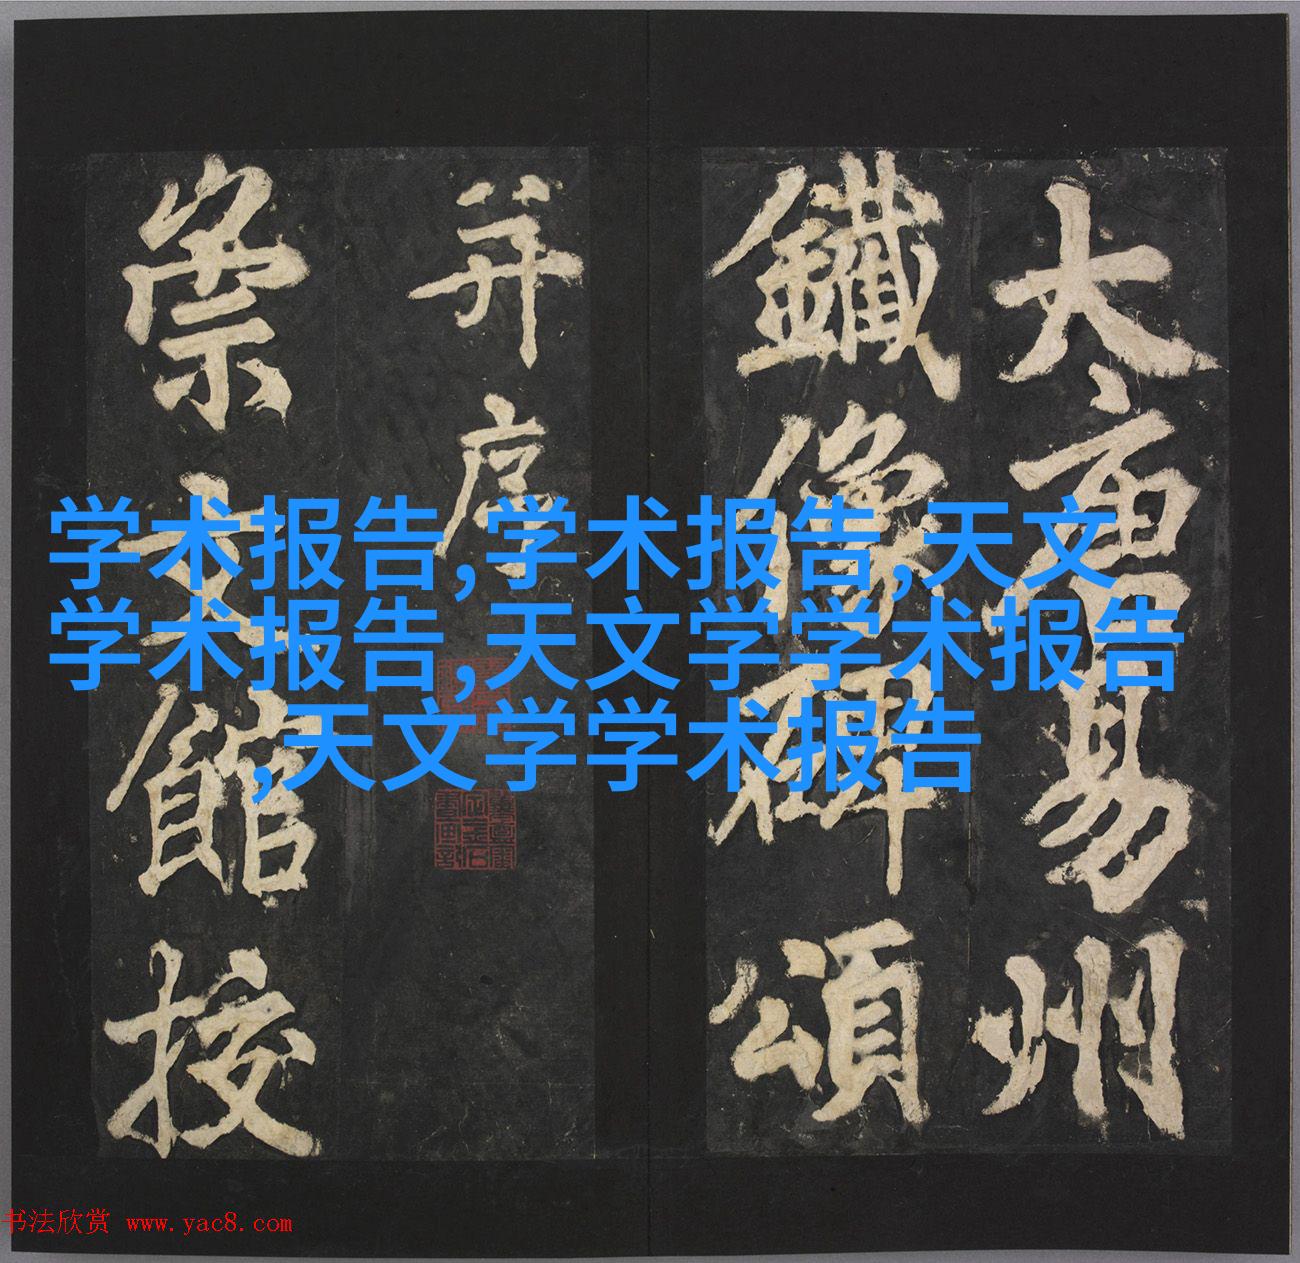 大唐易州
鐵像碑頌
并序
崇文館校
学术报告,学术报告,天文
学术报告,天文学学术报告
,天文学学术报告
书法欣赏 www.yac8.com